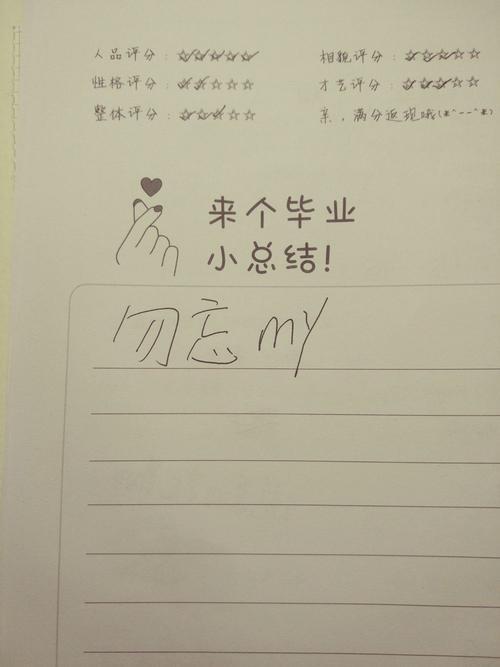 人品评分：☆☆☆☆☆ 相貌评分：☆☆☆☆☆
性格评分：☆☆☆☆☆ 才艺评分：☆☆☆☆☆
整体评分：☆☆☆☆☆ 亲，满分返现哦(*^--^*)
来个毕业
小总结!
勿忘my